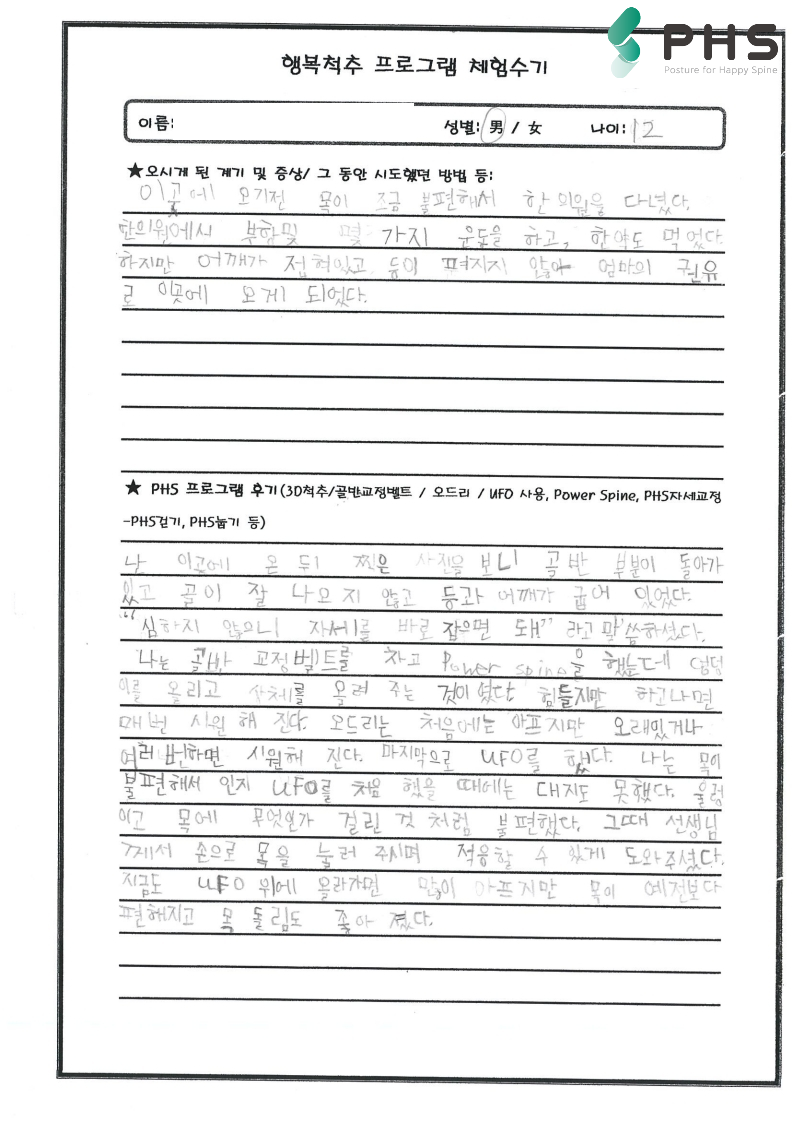 PHS
Posture for Happy Spine
행복척추 프로그램 체험수기
이름:
성별: 男 / 女 나이: 12
★오시게 된 계기 및 증상/ 그 동안 시도했던 방법 등:
이곳에 오기전 목이 조금 불편해서 한의원을 다녔다.
한의원에서 부항및 몇 가지 운동을 하고, 한약도 먹었다.
하지만 어깨가 접혀있고 등이 펴지지 않아 엄마의 권유
로 이곳에 오게 되었다.
★ PHS 프로그램 후기(3D척추/골반교정벨트 / 오드리 / UFO 사용, Power Spine, PHS자세교정
-PHS걷기, PHS눕기 등)
난 이곳에 온 뒤 찍은 사진을 보니 골반 부분이 돌아가
있고 골이 잘 나오지 않고 등과 어깨가 굽어 있었다.
"심하지 않으니 자세를 바로 잡으면 돼!" 라고 말씀하셨다.
나는 골반 교정벨트를 차고 Power spine을 했는데 엉덩
이를 올리고 상체를 올려 주는 것이였다 힘들지만 하고나면
매번 시원해 진다. 오드리는 처음에는 아프지만 오래있거나
여러번하면 시원해 진다. 마지막으로 UFO를 했다. 나는 목이
불편해서 인지 UFO를 처음 했을 때에는 대지도 못했다. 울렁
이고 목에 무엇인가 걸린 것 처럼 불편했다. 그때 선생님
께서 손으로 목을 눌러 주시며 적응할 수 있게 도와주셨다.
지금도 UFO 위에 올라가면 많이 아프지만 목이 예전보다
편해지고 목 돌림도 좋아 졌다.